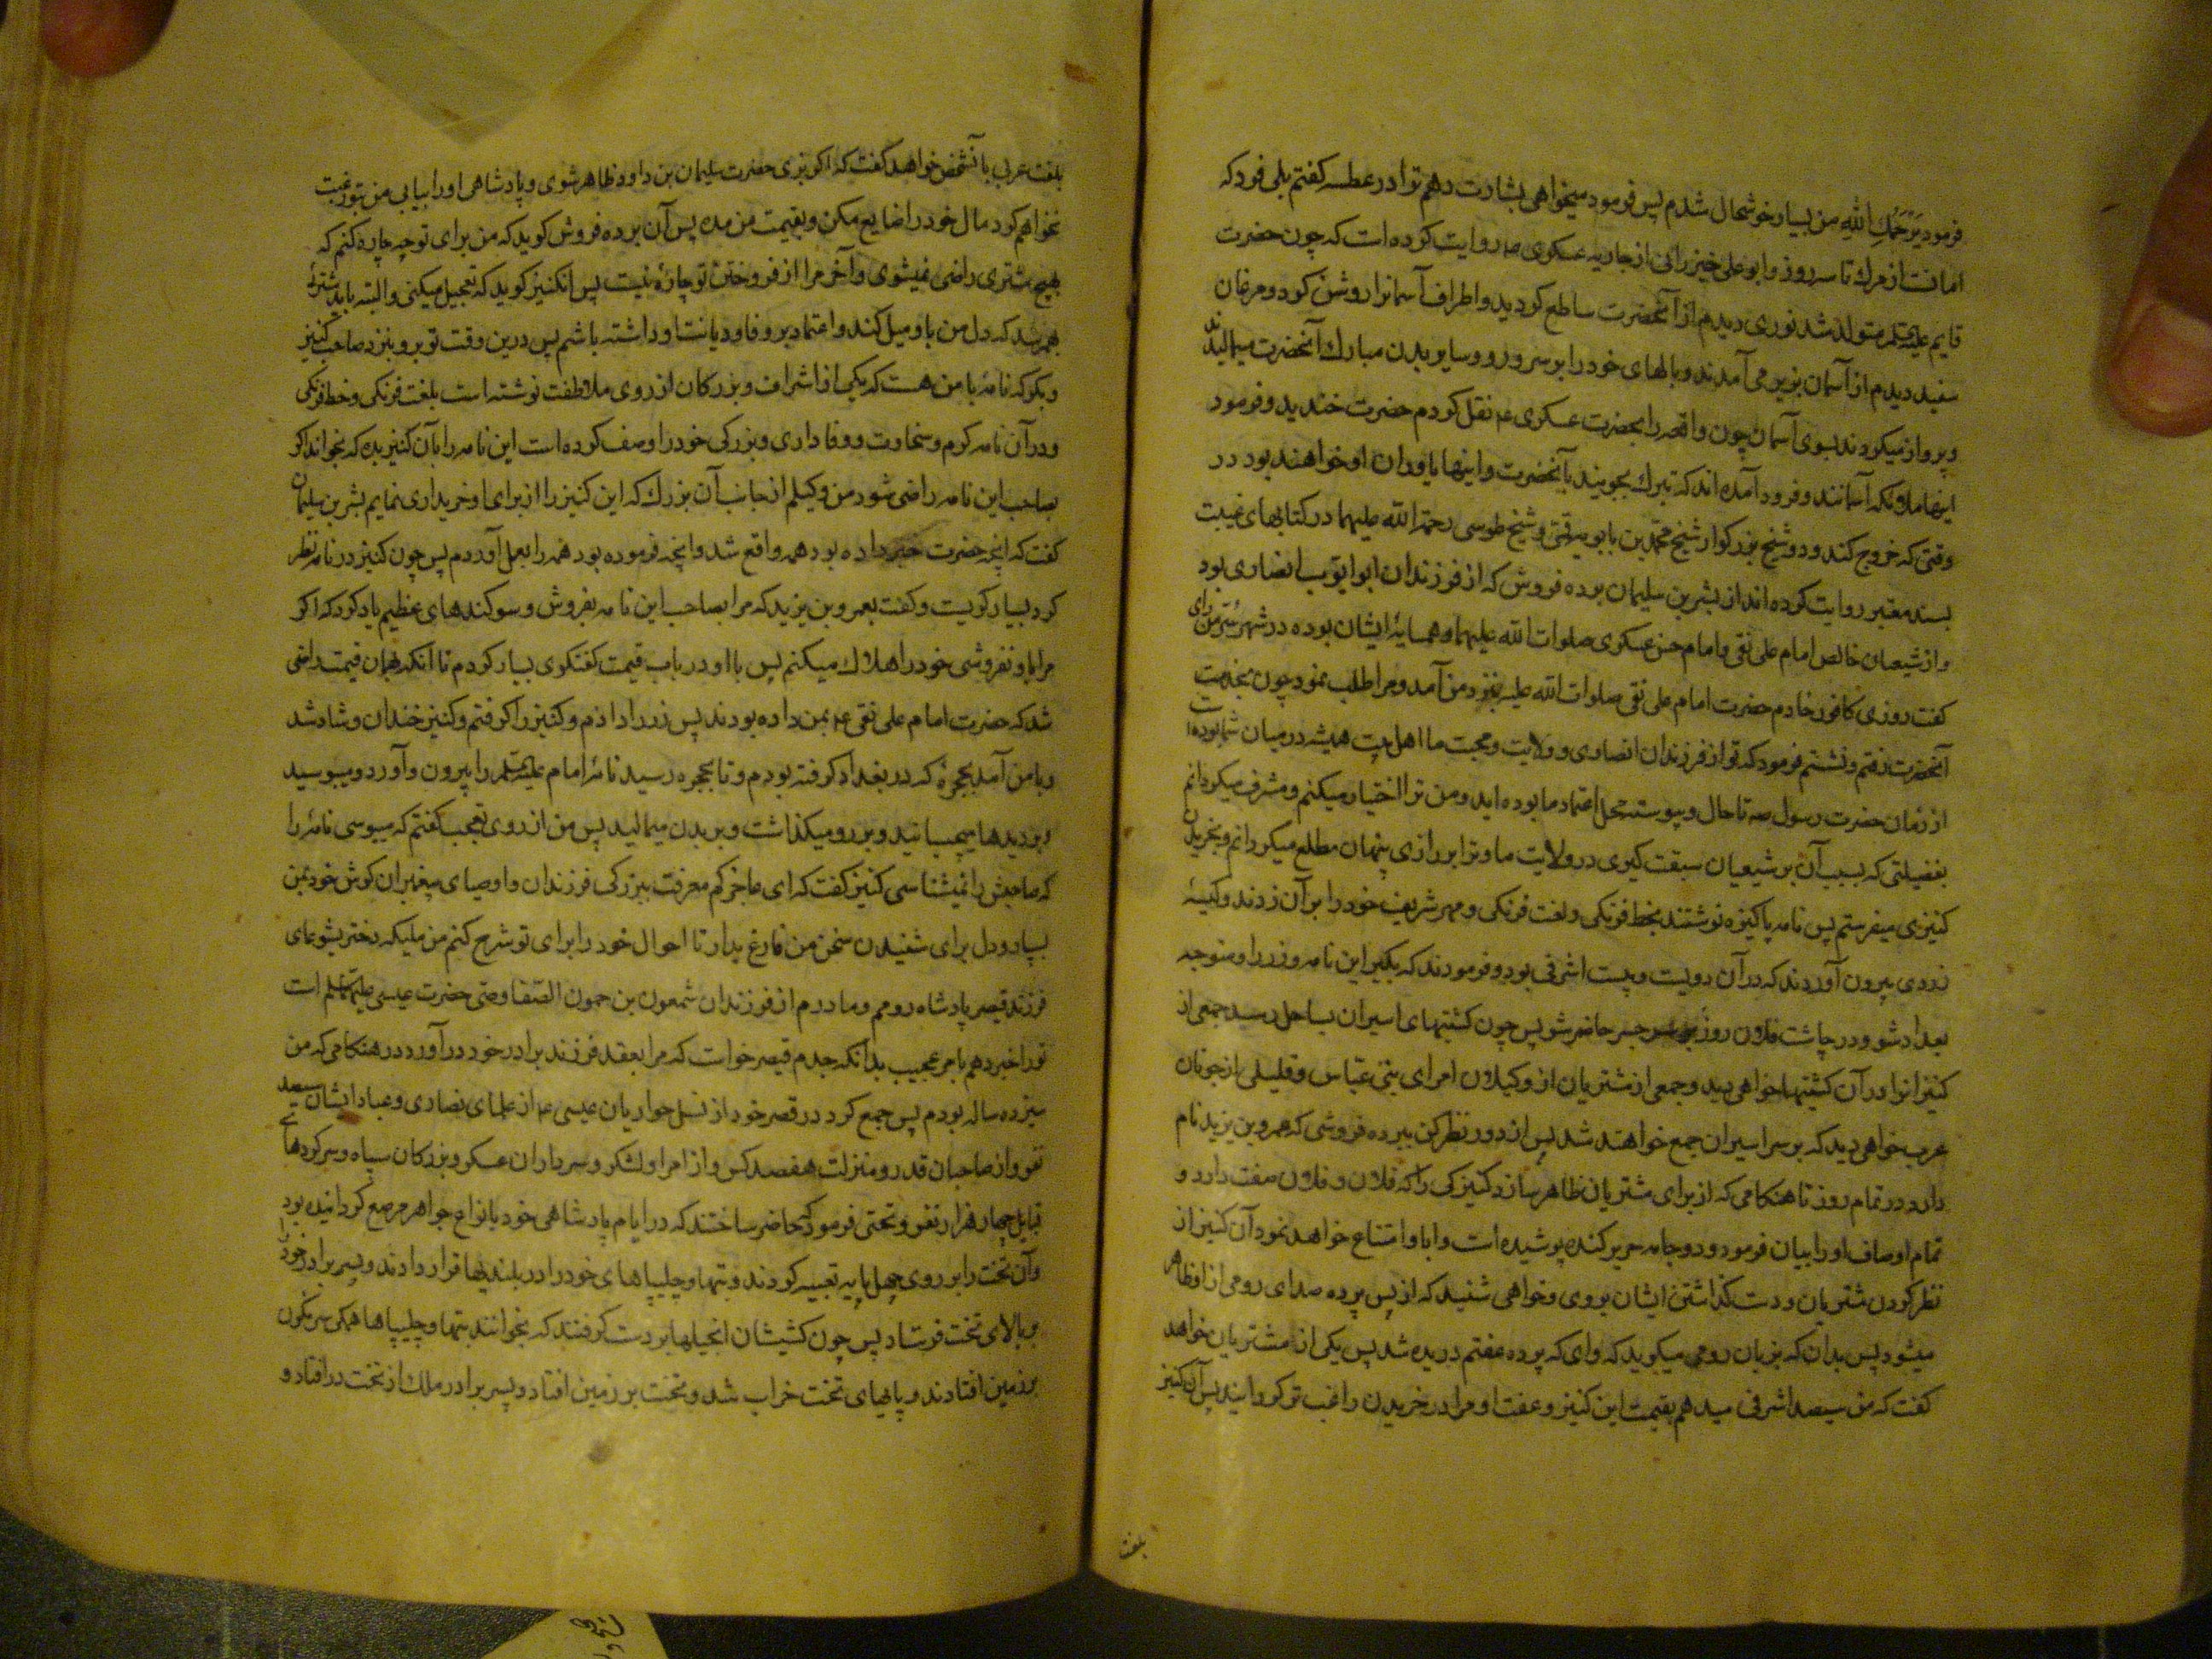 فرمود یَرْحَمُكِ اللّٰهِ من بسیار خوشحال شدم پس فرمود میخواهی بشارت دهم ترا در عطسه کفتم بلی فرود که
امانست از مرك تا سه روز و ابو علی خیزرانی از جاریه عسکوی ع روایت کرده است که چون حضرت
قایم علیه السلم متولد شد نوری دیدم از آنحضرت ساطع کردید و اطراف آسمانرا روشن کرد و مرغان
سفید دیدم از آسمان بزیر می آمدند و بالهای خود را بر سر و رو و سایر بدن مبارك آنحضرت میمالیدند
و پرواز میکردند بسوی آسمان چون واقعه را بحضرت عسکری ع نقل کردم حضرت خندید و فرمود
اینها ملائکه آسمانند و فرود آمده اند که تبرك بجویند بآنحضرت و اینها یاوران او خواهند بود در
وقتی که خروج کند و دو شیخ بزرکوار شیخ محمد بن بابویه قمی و شیخ طوسی رحمة اللّٰه علیهما در کتابهای غیبت
بسند معتبر روایت کرده اند از بشر بن سلیمان برده فروش که از فرزندان ابو ایوب انصاری بود
و از شیعیان خالص امام علی نقی و امام حسن عسکری صلوات اللّٰه علیهما و همسایۀ ایشان بوده در شهر سُرّ من رای
کفت روزی کافور خادم حضرت امام علی نقی صلوات اللّٰه علیه بنزد من آمد و مرا طلب نمود چون بخدمت
آنحضرت رفتم و نشستم فرمود که تو از فرزندان انصاری و ولایت و محبت ما اهل بیت همیشه در میان شما بوده است
از زمان حضرت رسول صه تا حال و پیوسته محل اعتماد ما بوده اید و من ترا اختیار میکنم و مشرف میکردانم
بفضیلتی که بسبب آن بر شیعیان سبقت کیری در ولایت ما و ترا بر رازی پنهان مطلع میکردانم و بخریدن
کنیزی میفرستم پس نامه پاکیزه نوشتند بخط فرنکی و لغت فرنکی و مهر شریف خود را بر آن زدند و کیسۀ
زردی بیرون آوردند که در آن دویست و بیست اشرفی بود و فرمودند که بکیر این نامه و زر را و متوجه
بغداد شو و در چاشت فلان روز بر سر جسر حاضر شو پس چون کشتیهای اسیران بساحل رسد جمعی از
کنیزانرا در آن کشتیها خواهی دید و جمعی از مشتریان از وکیلان امرای بنی عباس و قلیلی از جوانان
عرب خواهی دید که بر سر اسیران جمع خواهند شد پس از دور نظر کن ببرده فروشی که عمرو بن یزید نام
دارد در تمام روز تا هنکامی که از برای مشتریان ظاهر سازد کنیزکی را که فلان و فلان صفت دارد و
تمام اوصاف او را بیان فرمود و دو جامه حریر کنده پوشیده است و ابا و امتناع خواهد نمود آن کنیز از
نظر کردن مشتریان و دست کذاشتن ایشان بروی و خواهی شنید که از پس پرده صدای رومی از او ظاهر
میشود پس بدان که بزبان رومی میکوید که وای که پرده عفتم دریده شد پس یکی از مشتریان خواهد
کفت که من سیصد اشرفی میدهم بقیمت این کنیز و عفت او مرا در خریدن راغب تر کردانید پس آن کنیز
بلغت
بلغت عربی بآنشخص خواهد کفت که اکر بزی حضرت سلیمان بن داود ظاهر شوی و پادشاهی او را بیابی من بتو رغبت
نخواهم کرد مال خود را ضایع مکن و بقیمت من مده پس آن برده فروش کوید که من برای تو چه چاره کنم که
بهیچ مشتری راضی نمیشوی و آخر مرا از فروختن تو چارۀ نیست پس انکنیز کوید که تعجیل میکنی و البته باید مشتریۀ
بهمرسد که دل من باو میل کند و اعتماد بر وفا و دیانت او داشته باشم پس درین وقت تو برو بنزد صاحب کنیز
و بکو که نامۀ با من هست که یکی از اشراف و بزرکان از روی ملاطفت نوشته است بلغت فرنکی و خط فرنکی
و در آن نامه کرم و سخاوت و وفاداری و بزرکی خود را وصف کرده است این نامه را بآن کنیز بده که بخواند اکر
بصاحب این نامه راضی شود من وکیلم از جانب آن بزرك که این کنیز را از برای او خریداری نمایم بشر بن سلیمان
کفت که آنچه حضرت خبر داده بود همه واقع شد و آنچه فرموده بود همه را بعمل آوردم پس چون کنیز در نامه نظر
کرد بسیار کریست و کفت بعمرو بن یزید که مرا بصاحب این نامه بفروش و سوکندهای عظیم یاد کرد که اکر
مرا باو نفروشی خود را هلاك میکنم پس با او در باب قیمت کفتکوی بسیار کردم تا آنکه بهمان قیمت راضی
شد که حضرت امام علی نقی ع بمن داده بودند پس زر را دادم و کنیز را کرفتم و کنیز خندان و شاد شد
و با من آمد بحجرۀ که در بغداد کرفته بودم و تا بحجره رسید نامۀ امام علیه السلم را بیرون آورد و میبوسید
و بر دیدها میچسبانید و بر رو میکذاشت و بر بدن میمالید پس من از روی تعجب کفتم که میبوسی نامۀ را
که صاحبش را نمیشناسی کنیز کفت که ای عاجز کم معرفت ببزرکی فرزندان و اوصیای پیغمبران کوش خود بمن
بسپار و دل برای شنیدن سخن من فارغ بدار تا احوال خود را برای تو شرح کنم من ملیکه دختر یشوعای
فرزند قیصر پادشاه رومم و مادرم از فرزندان شمعون بن حمون الصفا وصی حضرت عیسی علیهما السلم است
ترا خبر دهم بامر عجیب بدانکه جدم قیصر خواست که مرا بعقد فرزند برادر خود در آورد در هنکامی که من
سیزده ساله بودم پس جمع کرد در قصر خود از نسل حواریان عیسی ع از علمای نصاری و عباد ایشان سیصد
نفر و از صاحبان قدر و منزلت هفصد کس و از امراء لشکر و سرداران عسکر و بزرکان سپاه و سرکردهای
قبایل چهار هزار نفر و تختی فرمود که حاضر ساختند که در ایام پادشاهی خود بانواع جواهر مرصع کردانیده بود
و آن تخت را بر روی چهل پایه تعبیه کردند و بتها و چلیپاهای خود را در بلندیها قرار دادند و پسر برادر خود را
بر بالای تخت فرستاد پس چون کشیشان انجیلها بر دست کرفتند که بخوانند بتها و چلیپاها همکی سرنکون
بر زمین افتادند و پاهای تخت خراب شد و تخت بر زمین افتاد و پسر برادر ملك از تخت در افتاد و